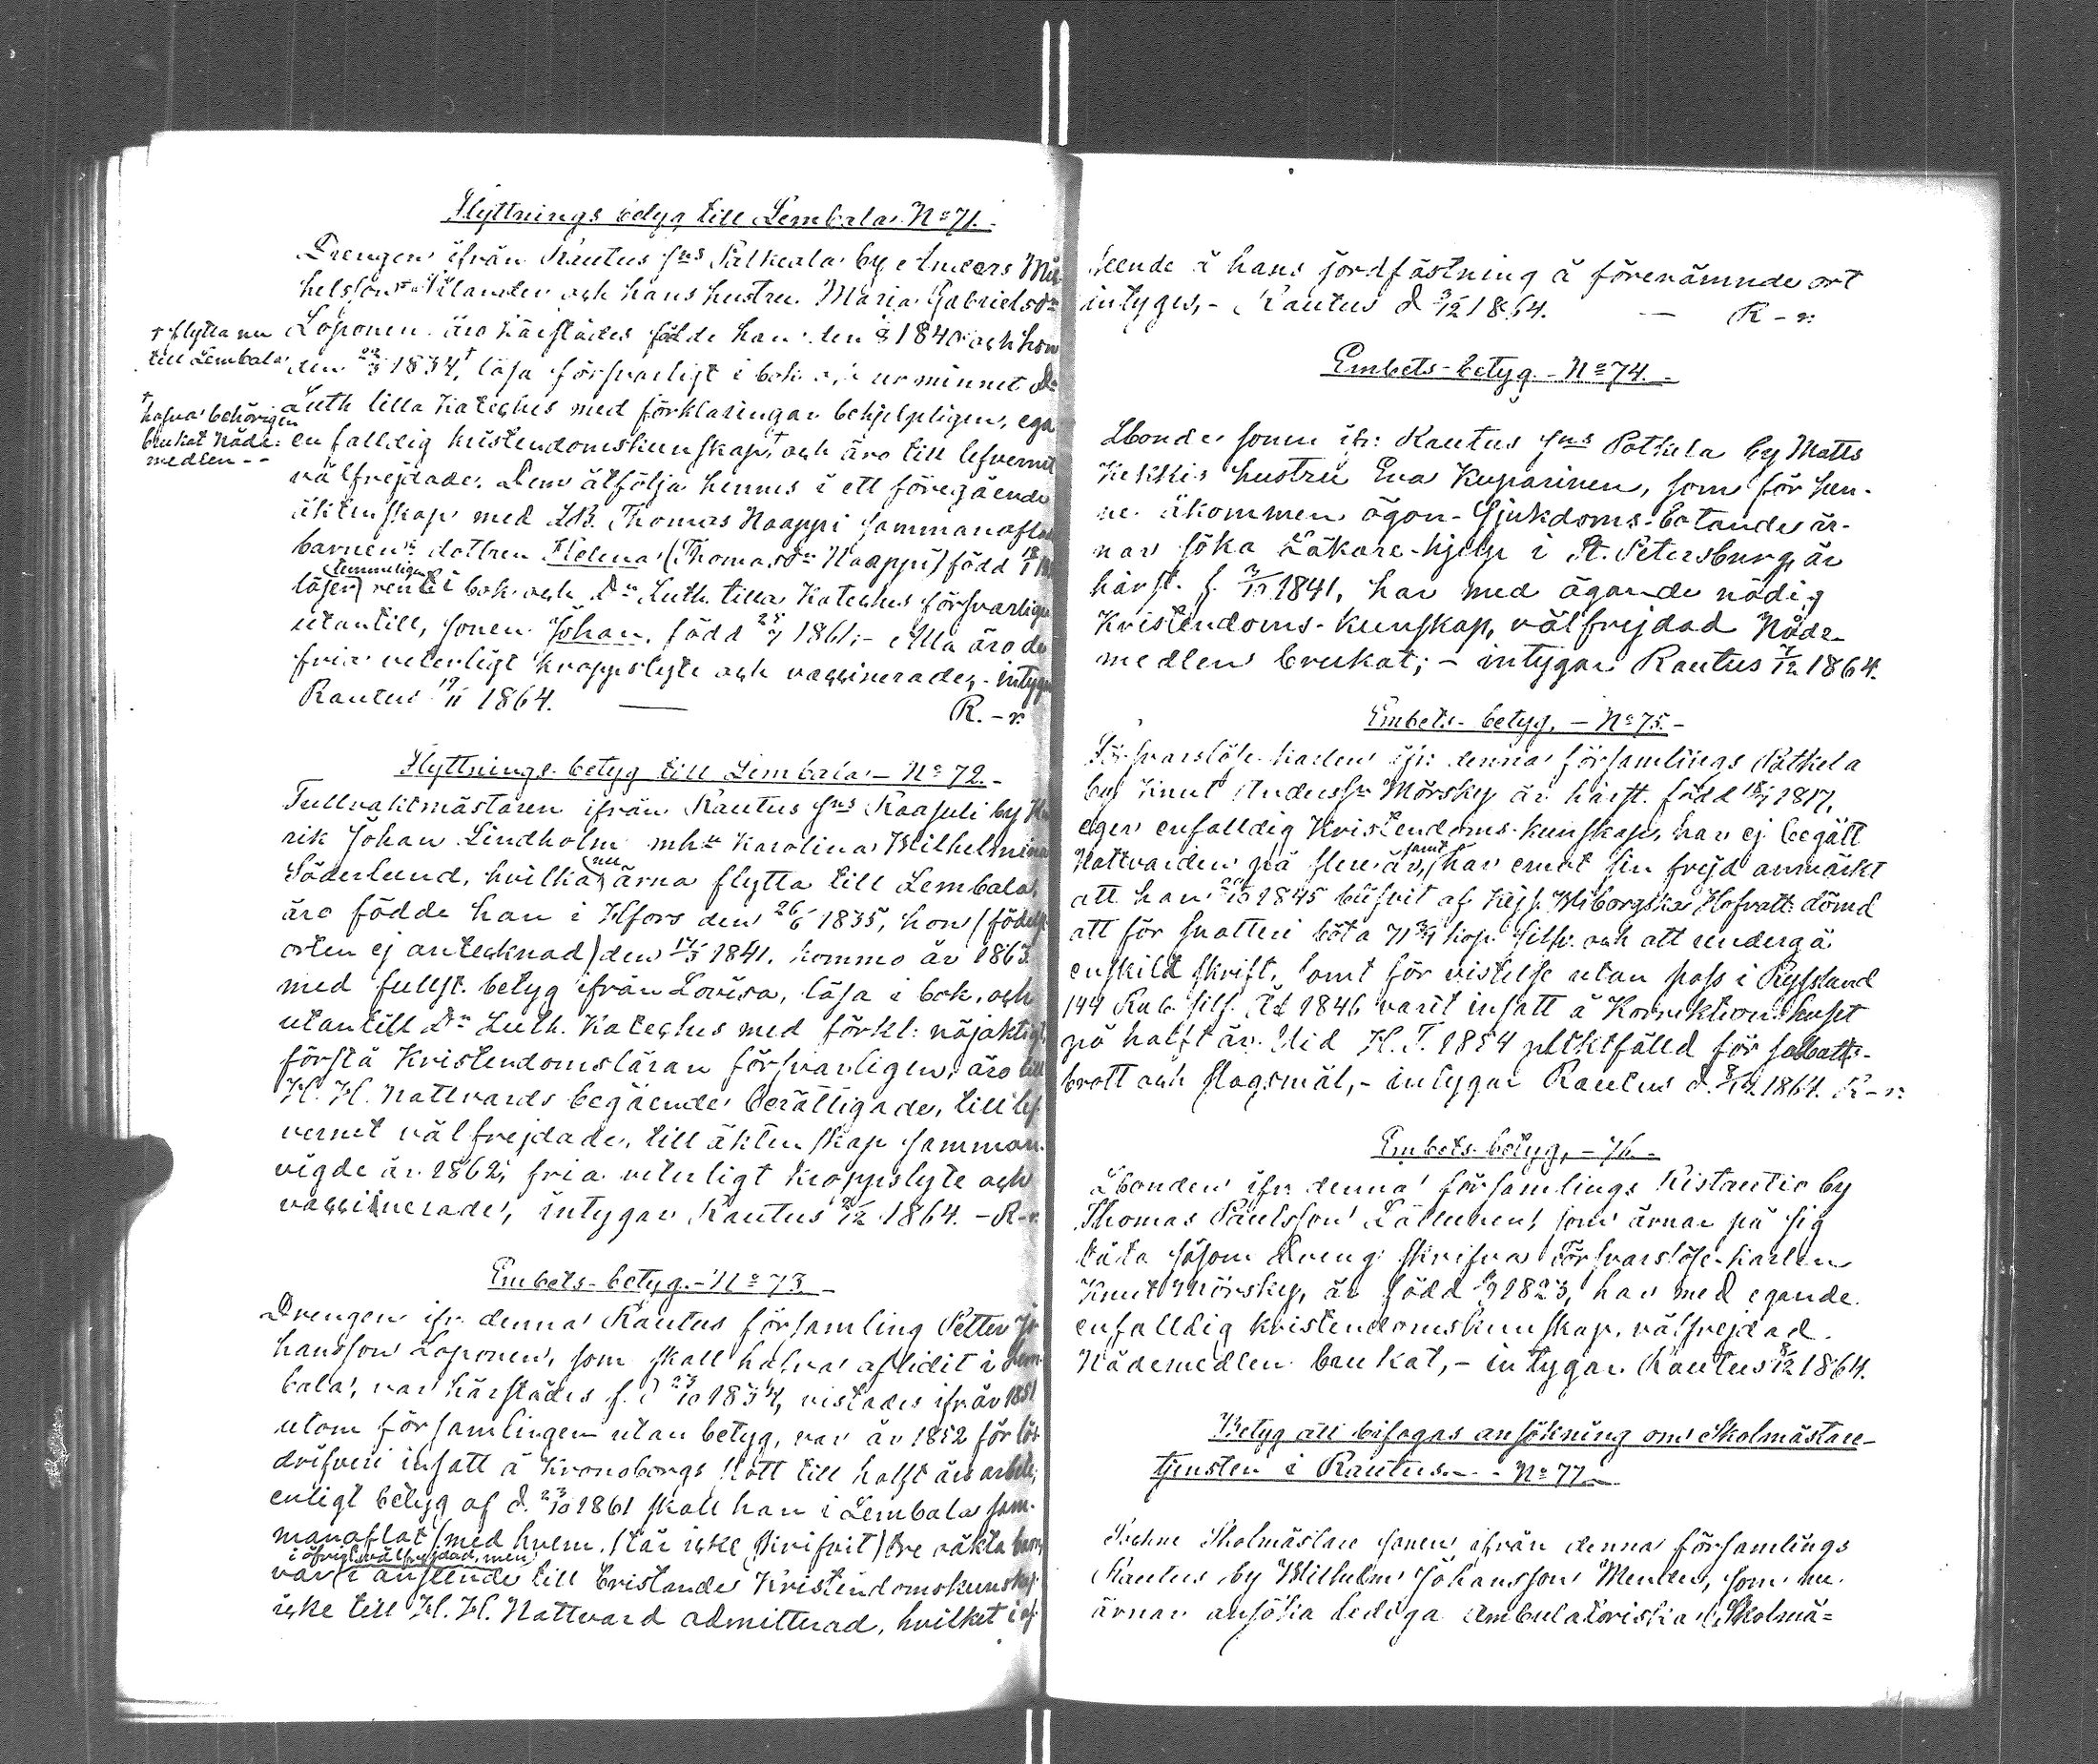 Flyttnings betyg till Lembala. No 71.-
Drengen ifrån Rautus sns Palkeala by Anders Mic
helsson Kilander och hans hustru Maria Gabrielsdr
Loponen äro härstädes födde han den 1840 och hon
† flytta nu
till Lembala
den 22/3 1834,† läsa försvarligt i bok och ur minnet Dr
Luth lilla Kateches med förklaringar behjelpligen, ega
† hafva behörigen
brukat Nåde-
medlen--
en falldig kristendomskunskap,† och äro till lefvernet
välfrejdade. Dem åtfölja hennes i ett föregående
äktenskap med LB. Thomas Haappi sammanaflade
barnen: dottren Helena (Thomasdr Haappi) född
läser (temmeligen) rent i bok och Dr Luth. lilla Kateches försvarligen
utantill, sonen Johan, född 1861;- Alla äro de
fria veterligt kroppslyte och vaccinerade,- intygar
Rautus 19/11 1864. — R.-r.
Flyttnings-betyg till Lembala - No 72.-
Tullvaktmästaren ifrån Rautus sns Raasuli by Hen
rik Johan Lindholm mhu Karolina Wilhelmina
Söderlund, hvilka nu ärna flytta till Lembala,
äro födde han i Hfors den 26/6 1835, hon (födelse
orten ej antecknad) den 17/5 1841. kommo år 1863
med fullst. betyg ifrån Lovisa, läsa i bok och
utantill Dr Luth. Kateches med förkl: nöjaktigt,
förstå Kristendomsläran försvarligen, äro till
H. H. Nattvards begående berättigade, till lef
vernet välfrejdade, till äktenskap samman-
vigde år 1862; fria veterligt kroppslyte och
vaccinerade, intygar Rautus 1864. - R-r.
Embets-betyg.- No 73 -
Drengen ifr. denna Rautus församling Petter Jo
hansson Loponen, som skall hafva aflidit i Lem-
bala, var härstädes f. d 23/10 1834, vistades ifr år 1851
utom församlingen utan betyg, var år 1852 för lös-
drifveri insatt å Kronoborgs slott till halft års arbete,
enligt betyg af d. 23/10 1861 skall han i Lembala sam-
manaflat (med hvem står icke skrifvit) tre oäkta barn,
i öfrigt välfrejdad, men
var i anseende till bristande Kristendomskunskap
icke till H. H. Nattvard admitterad, hvilket i af
seende å hans jordfästning å förenämnde ort
intygas,- Rautus d 3/12 1864. — R-r.
Embets-betyg.- No 74.-
Lbonde sonen ifr: Rautus sns Potkela by Matts
Kekkis hustru Eva Kuparinen, som för hen-
ne åkommen ögon-sjukdoms-botande är-
nar söka Läkare-hjelp i St. Petersburg, är
härst. f. 3/10 1841, har med ägande nödig
Kristendoms-kunskap, välfrejdad Nåde-
medlen brukat; - intygar Rautus 7/12 1864.
Embets-betyg, - No 75.-
Försvarslöse karlen ifr: denna församlings Potkela
by Knut Andersson Mörsky är härst. född 1817,
eger enfalldig Kristendoms-kunskap, har ej begått
Nattvarden på flere år, samt har emot sin frejd anmärkt
att han 1845 blifvit af Kejs. Wiborgska Hofrätt dömd
att för snatteri böta 71 3/7 kop. silfv. och att undergå
enskild skrift, samt för vistelse utan pass i Ryssland
144 Rub. silf. Åt 1846 varit insatt å Korrektionshuset
på halft år. Vid H. T. 1854 pliktfälld för sabbats-
brott och slagsmål,- intygar Rautus d. 8/12 1864. R-r.
Embets-betyg, - 76.-
Lbonden ifr denna församlings Ristautio by
Thomas Paulsson Lällinen, som ärnar på sig
låta såsom dreng skrifva Försvarslöse karlen
Knut Mörsky, är född 1823, har med egande
enfalldig kristendomskunskap, välfrejdad
Nådemedlen brukat,- intygar Rautus 8/12 1864.
Betyg att bifogas ansökning om Skolmästare-
tjensten i Rautus.-- No 77.-
Skolmästare sonen ifrån denna församlings
Rautus by Wilhelm Johansson Menden, som nu
ärnar ansöka lediga Ambulatoriska Skolmä=